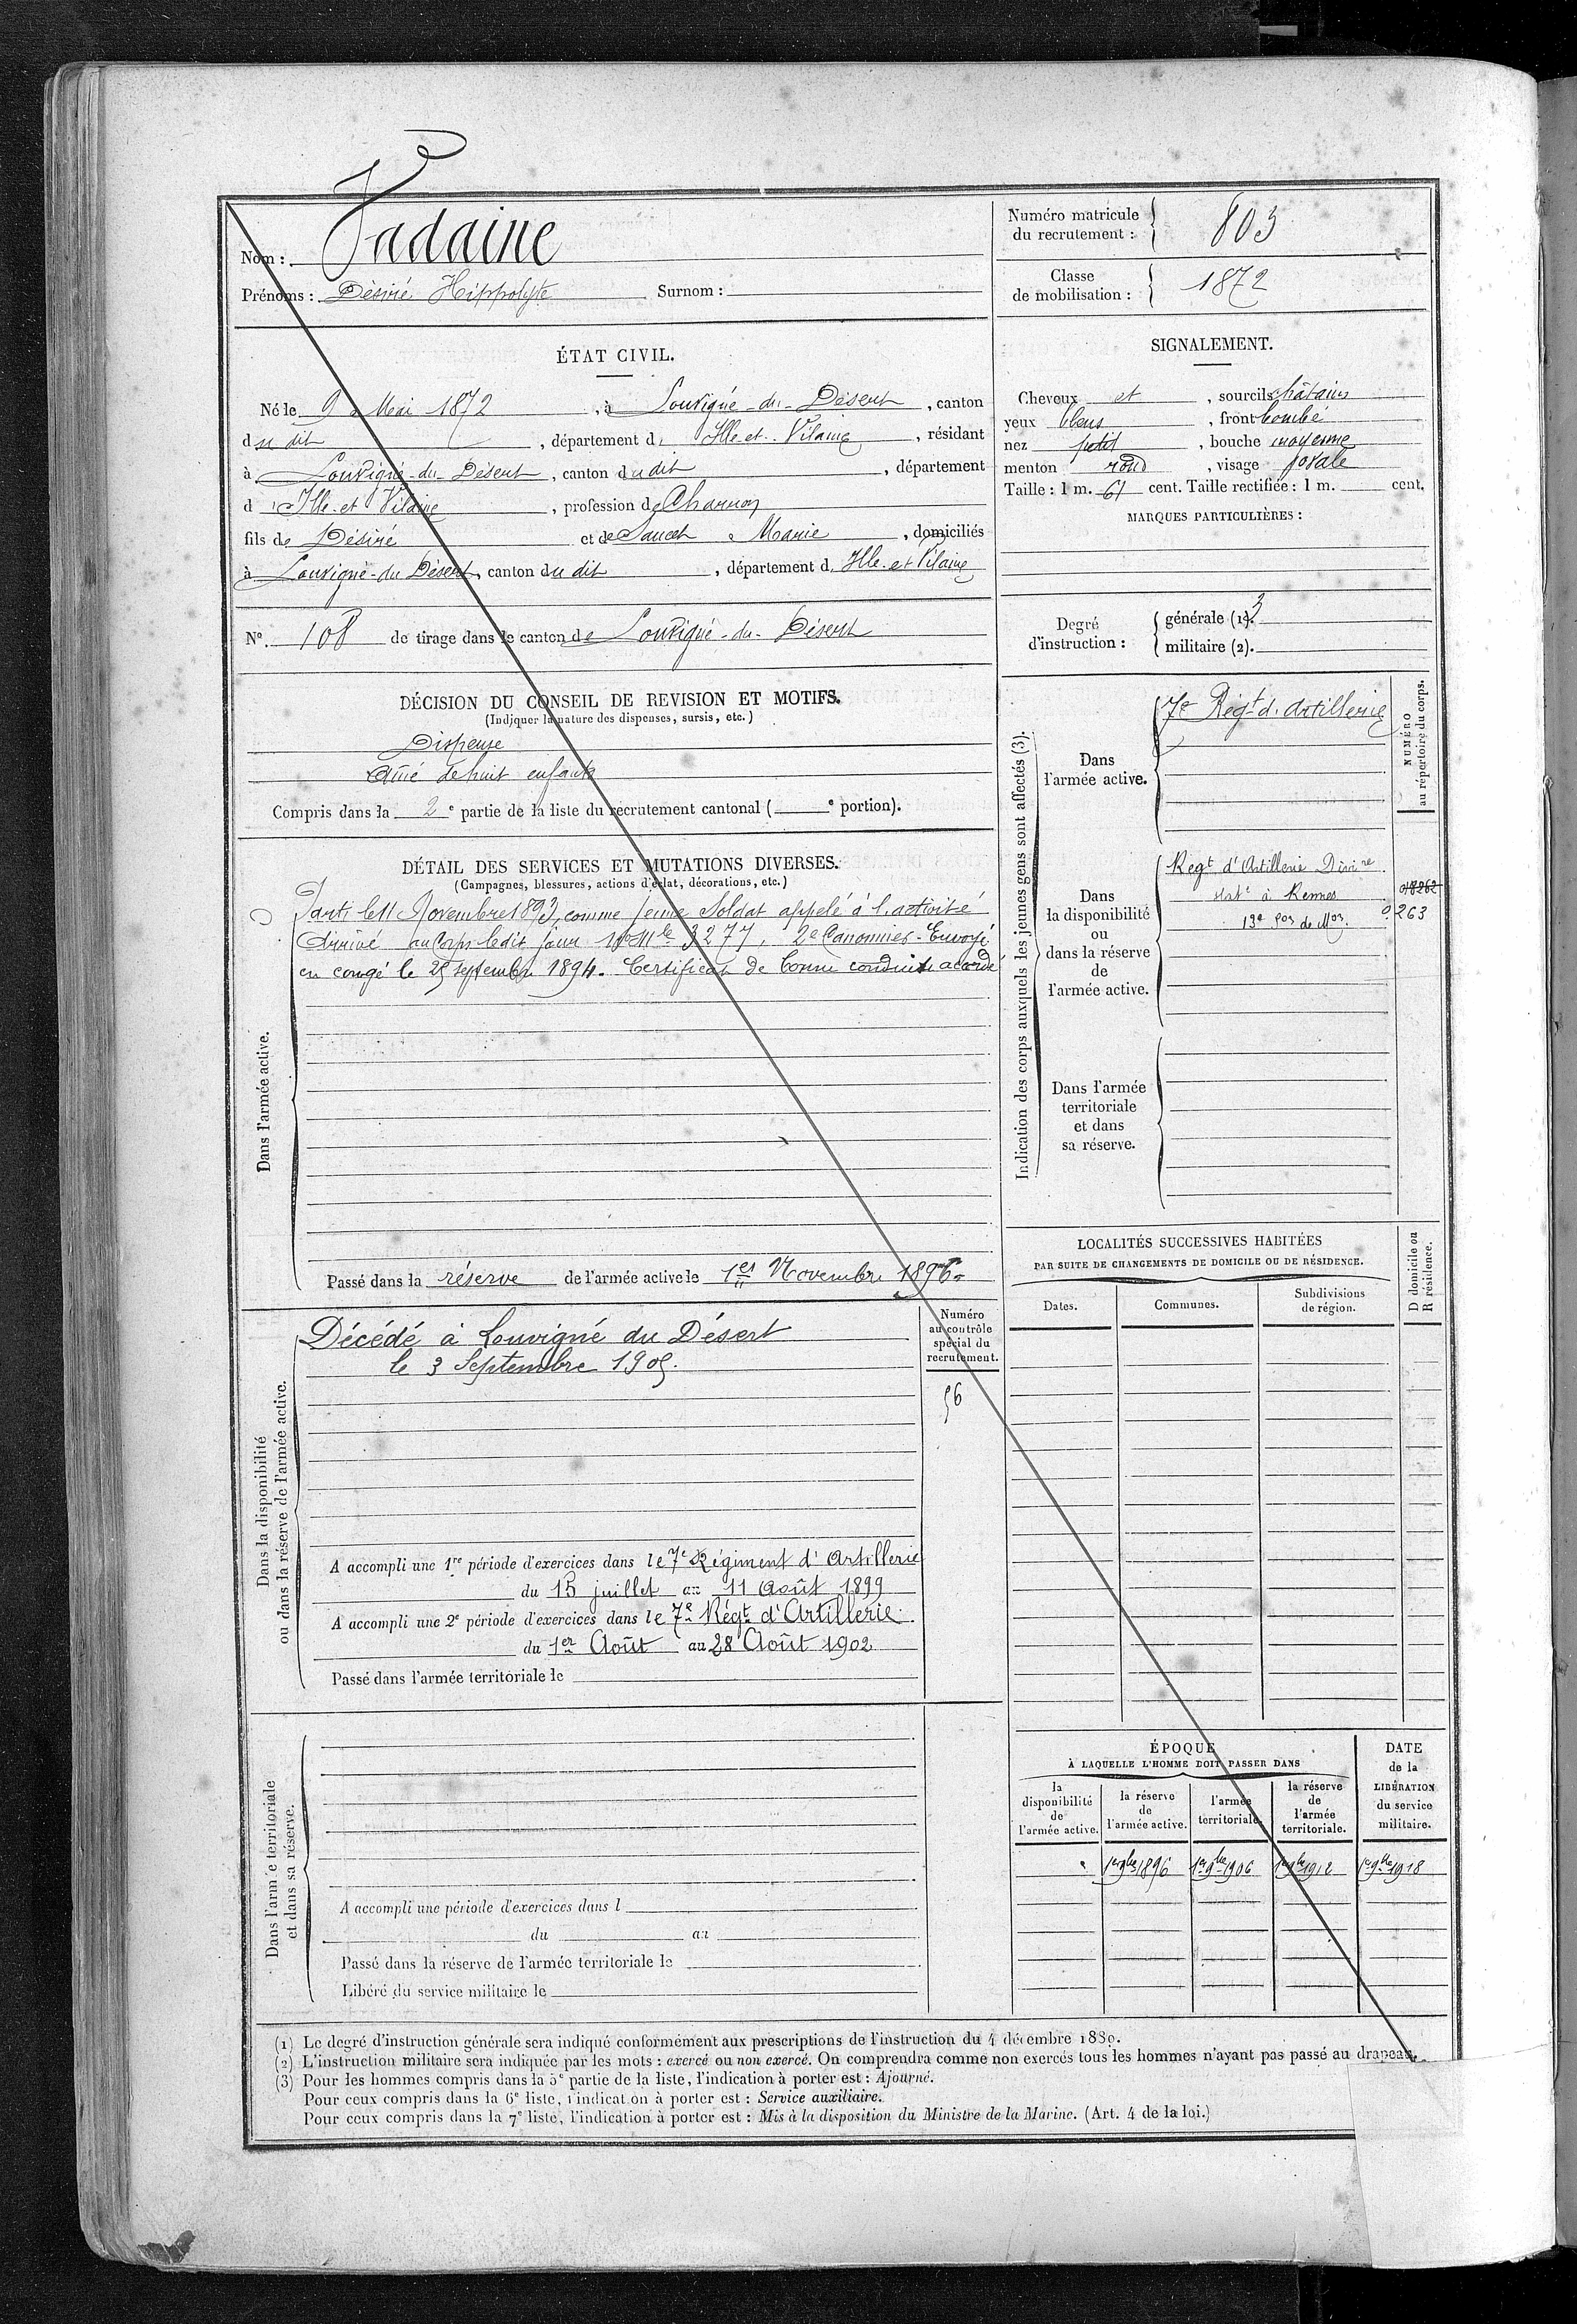 Nom : Vadaine
Prénoms : Désiré Hippolyte Surnom :
Numéro matricule du recrutement : 803
Classe de mobilisation : 1872
ÉTAT CIVIL.
Né le 9 Mai 1872, à Louvigné-du-Désert, canton
du dit, département d'Ille-et-Vilaine, résidant
à Louvigné-du-Désert, canton du dit, département
d'Ille-et-Vilaine, profession de Charron
fils de Désiré et de Marie, domiciliés
à Louvigné-du-Désert, canton du dit, département d'Ille-et-Vilaine
N° 108 de tirage dans le canton de Louvigné-du-Désert
SIGNALEMENT.
Cheveux et, sourcils châtains
yeux bleus, front bombé
nez petit, bouche moyenne
menton rond, visage ovale
Taille : 1 m. 61 cent. Taille rectifiée : 1 m. cent.
MARQUES PARTICULIÈRES :
Degré d'instruction : générale (1). 3
militaire (2).
DÉCISION DU CONSEIL DE REVISION ET MOTIFS.
(Indiquer la nature des dispenses, sursis, etc.)
Dispense
Aîné de huit enfants
Compris dans la 2e partie de la liste du recrutement cantonal ( e portion).
DÉTAIL DES SERVICES ET MUTATIONS DIVERSES.
(Campagnes, blessures, actions d'éclat, décorations, etc.)
Dans l'armée active.
Parti le 11 Novembre 1893, comme jeune Soldat appelé à l'activité
Arrivé au Corps ledit jour N° Mle 3277, 2e Canonnier - Envoyé
en congé le 25 septembre 1894. Certificat de bonne conduite accordé
Passé dans la réserve de l'armée active le 1er Novembre 1896
Indication des corps auxquels les jeunes gens sont affectés (3).
NUMÉRO au répertoire du corps.
Dans l'armée active.
7e Régt d'Artillerie
Dans la disponibilité ou dans la réserve de l'armée active.
Regt d'Artillerie
à Rennes
263
Dans l'armée territoriale et dans sa réserve.
LOCALITÉS SUCCESSIVES HABITÉES
PAR SUITE DE CHANGEMENTS DE DOMICILE OU DE RÉSIDENCE.
Dates. Communes. Subdivisions de région. D domicile ou R résidence.
Dans la disponibilité ou dans la réserve de l'armée active.
Numéro au contrôle spécial du recrutement.
56
Décédé à Louvigné du Désert
le 3 Septembre 1905.
A accompli une 1re période d'exercices dans le 7e Régiment d'Artillerie
du 15 juillet au 11 Août 1899
A accompli une 2e période d'exercices dans le 7e Régt d'Artillerie
du 1er Août au 28 Août 1902
Passé dans l'armée territoriale le
Dans l'armée territoriale et dans sa réserve.
A accompli une période d'exercices dans l
du au
Passé dans la réserve de l'armée territoriale le
Libéré du service militaire le
ÉPOQUE
À LAQUELLE L'HOMME DOIT PASSER DANS
DATE de la LIBÉRATION du service militaire.
la disponibilité de l'armée active. la réserve de l'armée active. l'armée territoriale. la réserve de l'armée territoriale.
1er 9bre 1896 1er 9bre 1906 1er 9bre 1912 1er 9bre 1918
(1) Le degré d'instruction générale sera indiqué conformément aux prescriptions de l'instruction du 4 décembre 1889.
(2) L'instruction militaire sera indiquée par les mots : exercé ou non exercé. On comprendra comme non exercés tous les hommes n'ayant pas passé au drapeau.
(3) Pour les hommes compris dans la 5e partie de la liste, l'indication à porter est : Ajourné.
Pour ceux compris dans la 6e liste, l'indication à porter est : Service auxiliaire.
Pour ceux compris dans la 7e liste, l'indication à porter est : Mis à la disposition du Ministre de la Marine. (Art. 4 de la loi.)